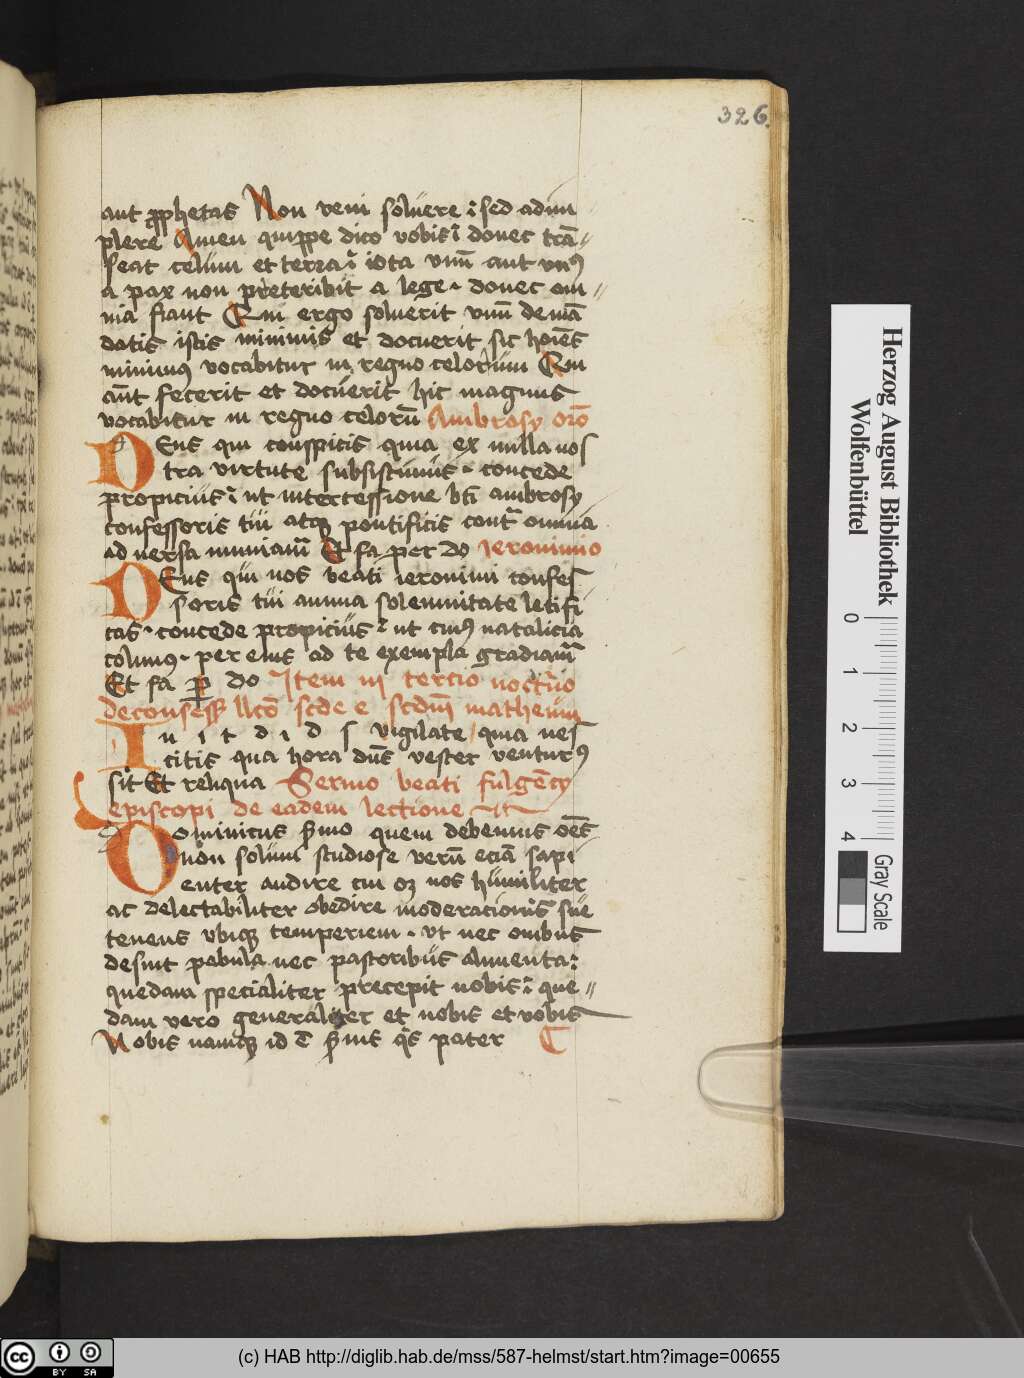 326
aut prophetas Non veni soluere sed adim
plere Amen quippe dico vobis donec trā
seat celum et terra iota vnū aut vnꝰ
a pax non preteribit a lege donec om
nia fiant Qui ergo soluerit vnū de mā
datis istis minimis et docuerit sic hoīes
minimꝰ vocabitur in regno celorum Qui
aūt fecerit et docuerit hic magnus
vocabitur in regno celorū Ambrosy orō
Deus qui conspicis quia ex nulla nos
tra virtute subsistimus concede
propicius ut intercessione bti ambrosy
confessoris tui atqꝫ pontificis contra omnia
ad uersa muniam̄ Et fa per do Ieronimo
Deus qui nos beati ieronimi confes
soris tui annua solemnitate letifi
cas concede propicius ut cuiꝰ natalicia
colimꝰ per eius ad te exempla gradiam̄
Et fa per do Item in tercio noct'no
De confess lcō scde e scdm̄ matheum
In i t d i d s vigilate quia nes
citis qua hora dn̄s vester venturꝰ
sit Et reliqua Sermo beati fulgēcy
episcopi de eadem lectione
Dominicus s̄mo quem debemus oēs
non solum studiose verū eciā sapi
enter audire cui oꝫ nos humiliter
ac delectabiliter obedire moderacionis sue
tenens vbiqꝫ temperiem vt nec ouibus
desint pabula nec pastoribus alimenta
quedam specialiter precepit nobis que
dam vero generaliter et nobis et vobis
Nobis namqꝫ id ē s̄uis qs pater
Herzog August Bibliothek
Wolfenbüttel
0 1 2 3 4
Gray Scale
cc BY SA
(c) HAB http://diglib.hab.de/mss/587-helmst/start.htm?image=00655